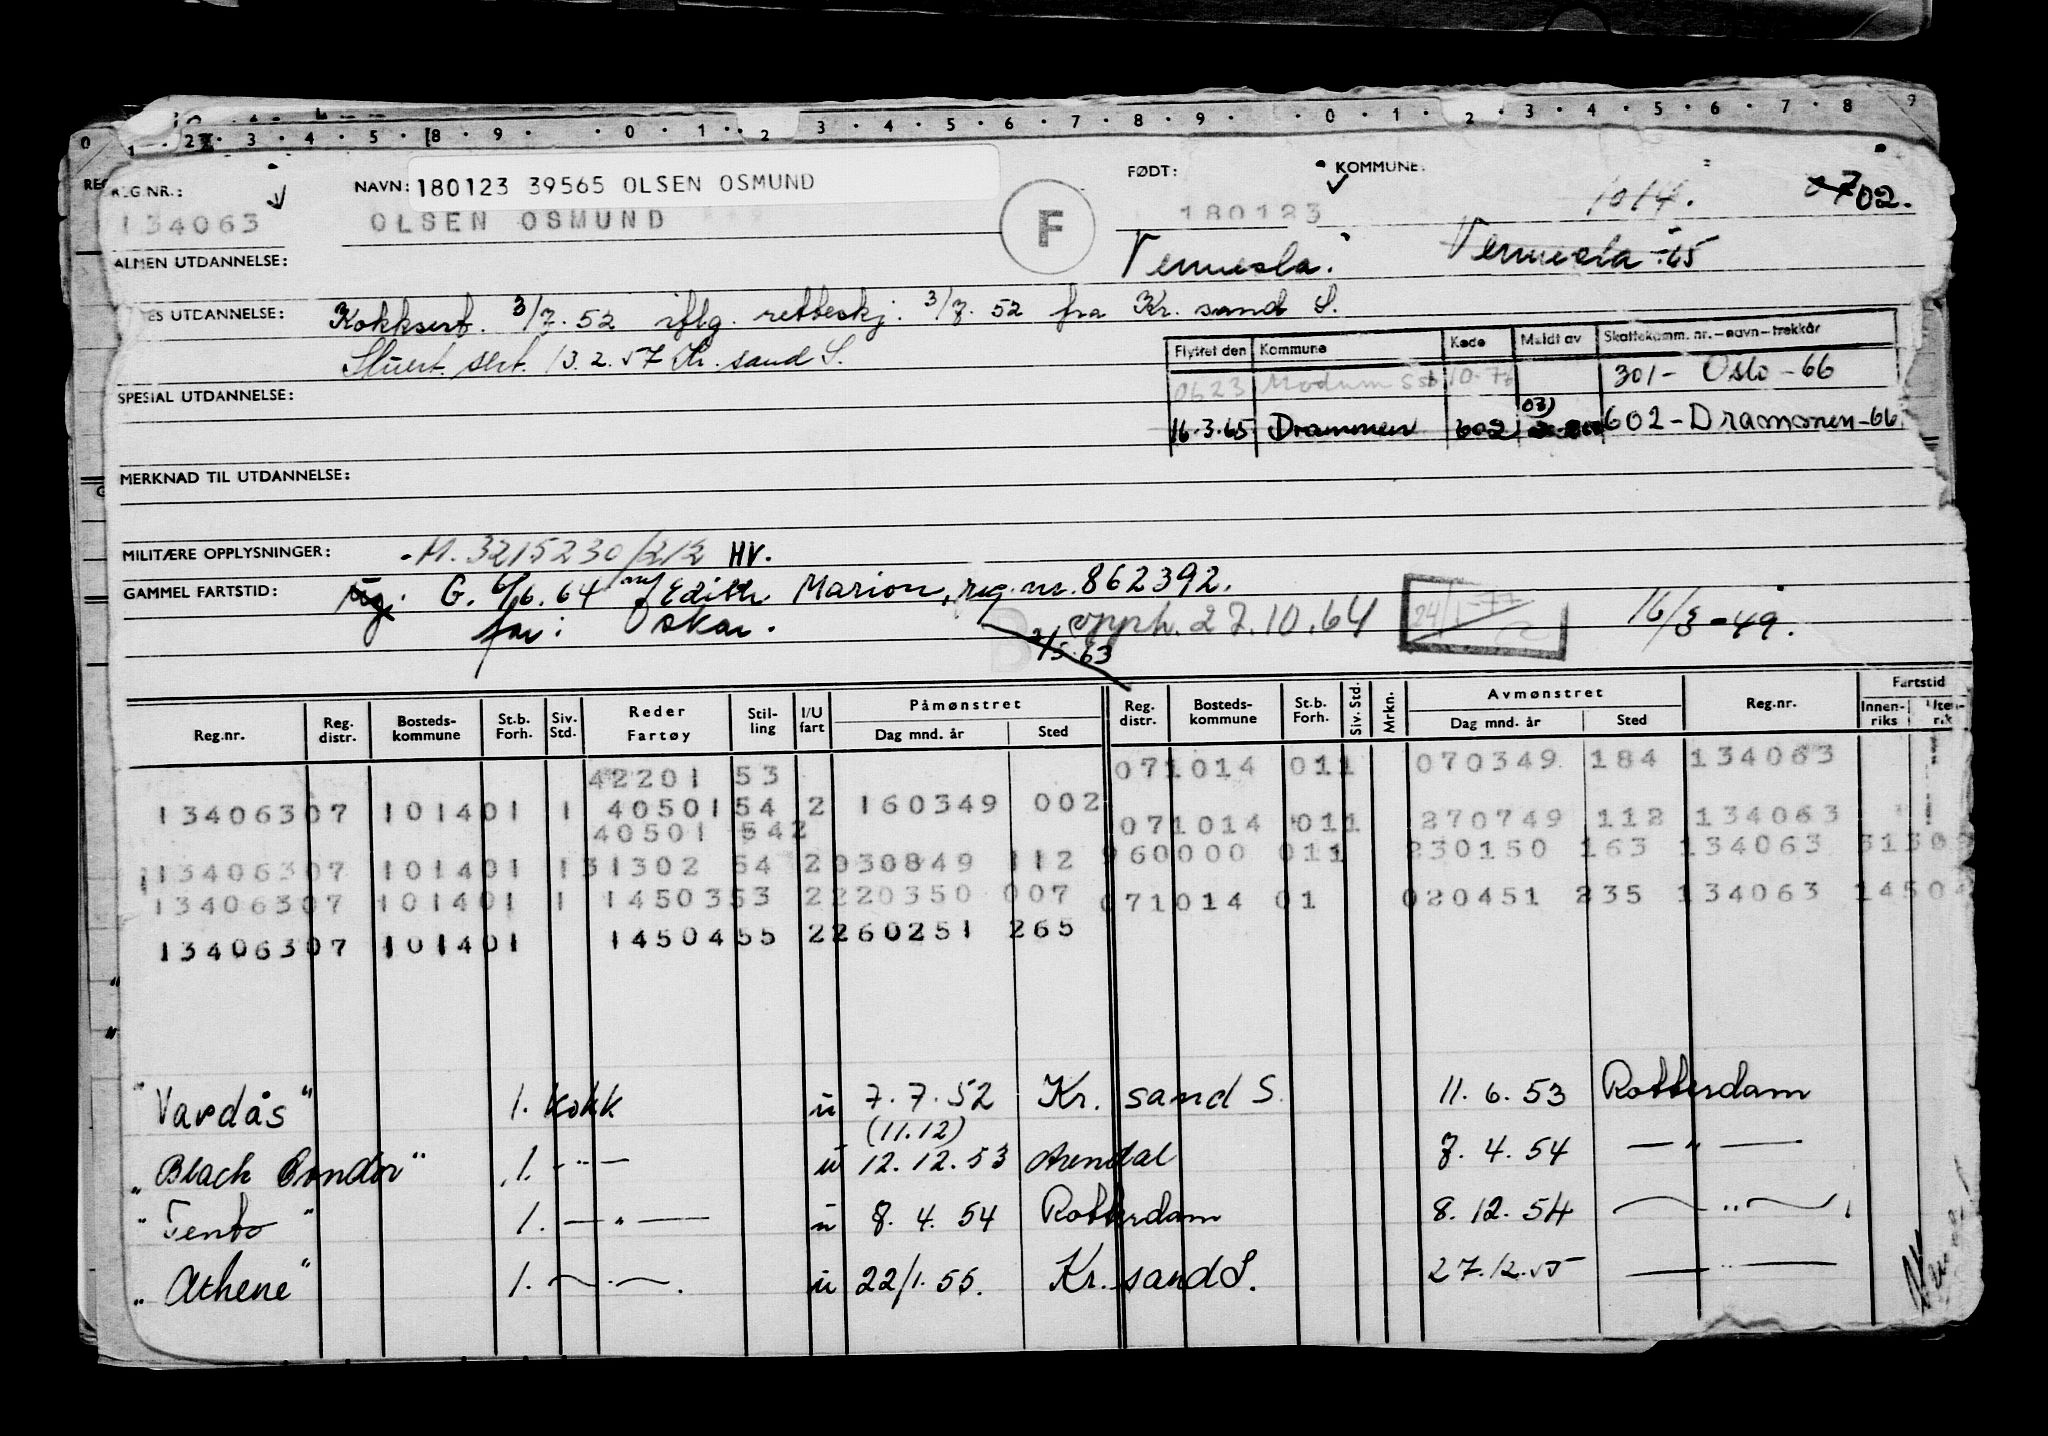 0 1 2 3 4 5 8 9 0 1 2 3 4 5 6 7 8 9 0 1 2 3 4 5 6 7 8 9
REG.NR.: NAVN: 180123 39565 OLSEN OSMUND FØDT: KOMMUNE:
134063 OLSEN OSMUND F 180123 1014. 702.
ALMEN UTDANNELSE: Vennesla. Vennesla -65
UTDANNELSE: Kokksert. 3/7.52 iflg. retteskj. 3/7.52 fra Kr. sand S.
Stuert sert. 13.2.57 Kr. sand S.
Flyttet den Kommune Kode Meldt av Skattekomm. nr.-navn-trekkår
0623 Modum 10-76 301- Oslo -66
SPESIAL UTDANNELSE:
16.3.65 Drammen 602 602-Drammen-66
MERKNAD TIL UTDANNELSE:
MILITÆRE OPPLYSNINGER: M. 3215230/212 HV.
GAMMEL FARTSTID: G. 6/6.64 m/ Edith Marion, reg.nr. 862392.
far: Oskar. opph. 27.10.64 24/1-77 16/3-49.
2/5.63
Reg.nr. Reg. distr. Bosteds-kommune St.b. Forh. Siv. Std. Reder Fartøy Stil-ling I/U fart Påmønstret Dag mnd. år Sted Reg. distr. Bosteds-kommune St.b. Forh. Siv. Std. Mrkn. Avmønstret Dag mnd. år Sted Reg.nr. Fartstid Innen-riks Uten-rik
42201 53 071014 011 070349 184 134063
134063 07 1014 01 1 40501 54 2 160349 002
40501 542 071014 011 270749 112 134063
134063 07 1014 01 1 31302 54 2 030849 112 960000 011 230150 163 134063
134063 07 1014 01 1 14503 53 2 220350 007 071014 01 020451 235 134063
134063 07 1014 01 14504 55 2 260251 265
"Vardås" 1. kokk u 7.7.52 Kr. sand S. 11.6.53 Rotterdam
(11.12)
"Black Condor" 1. -"- u 12.12.53 Arendal 7.4.54 -"-
"Tento" 1. -"- u 8.4.54 Rotterdam 8.12.54 -"-
"Athene" 1. -"- u 22/1.55. Kr. sand S. 27.12.55 -"-